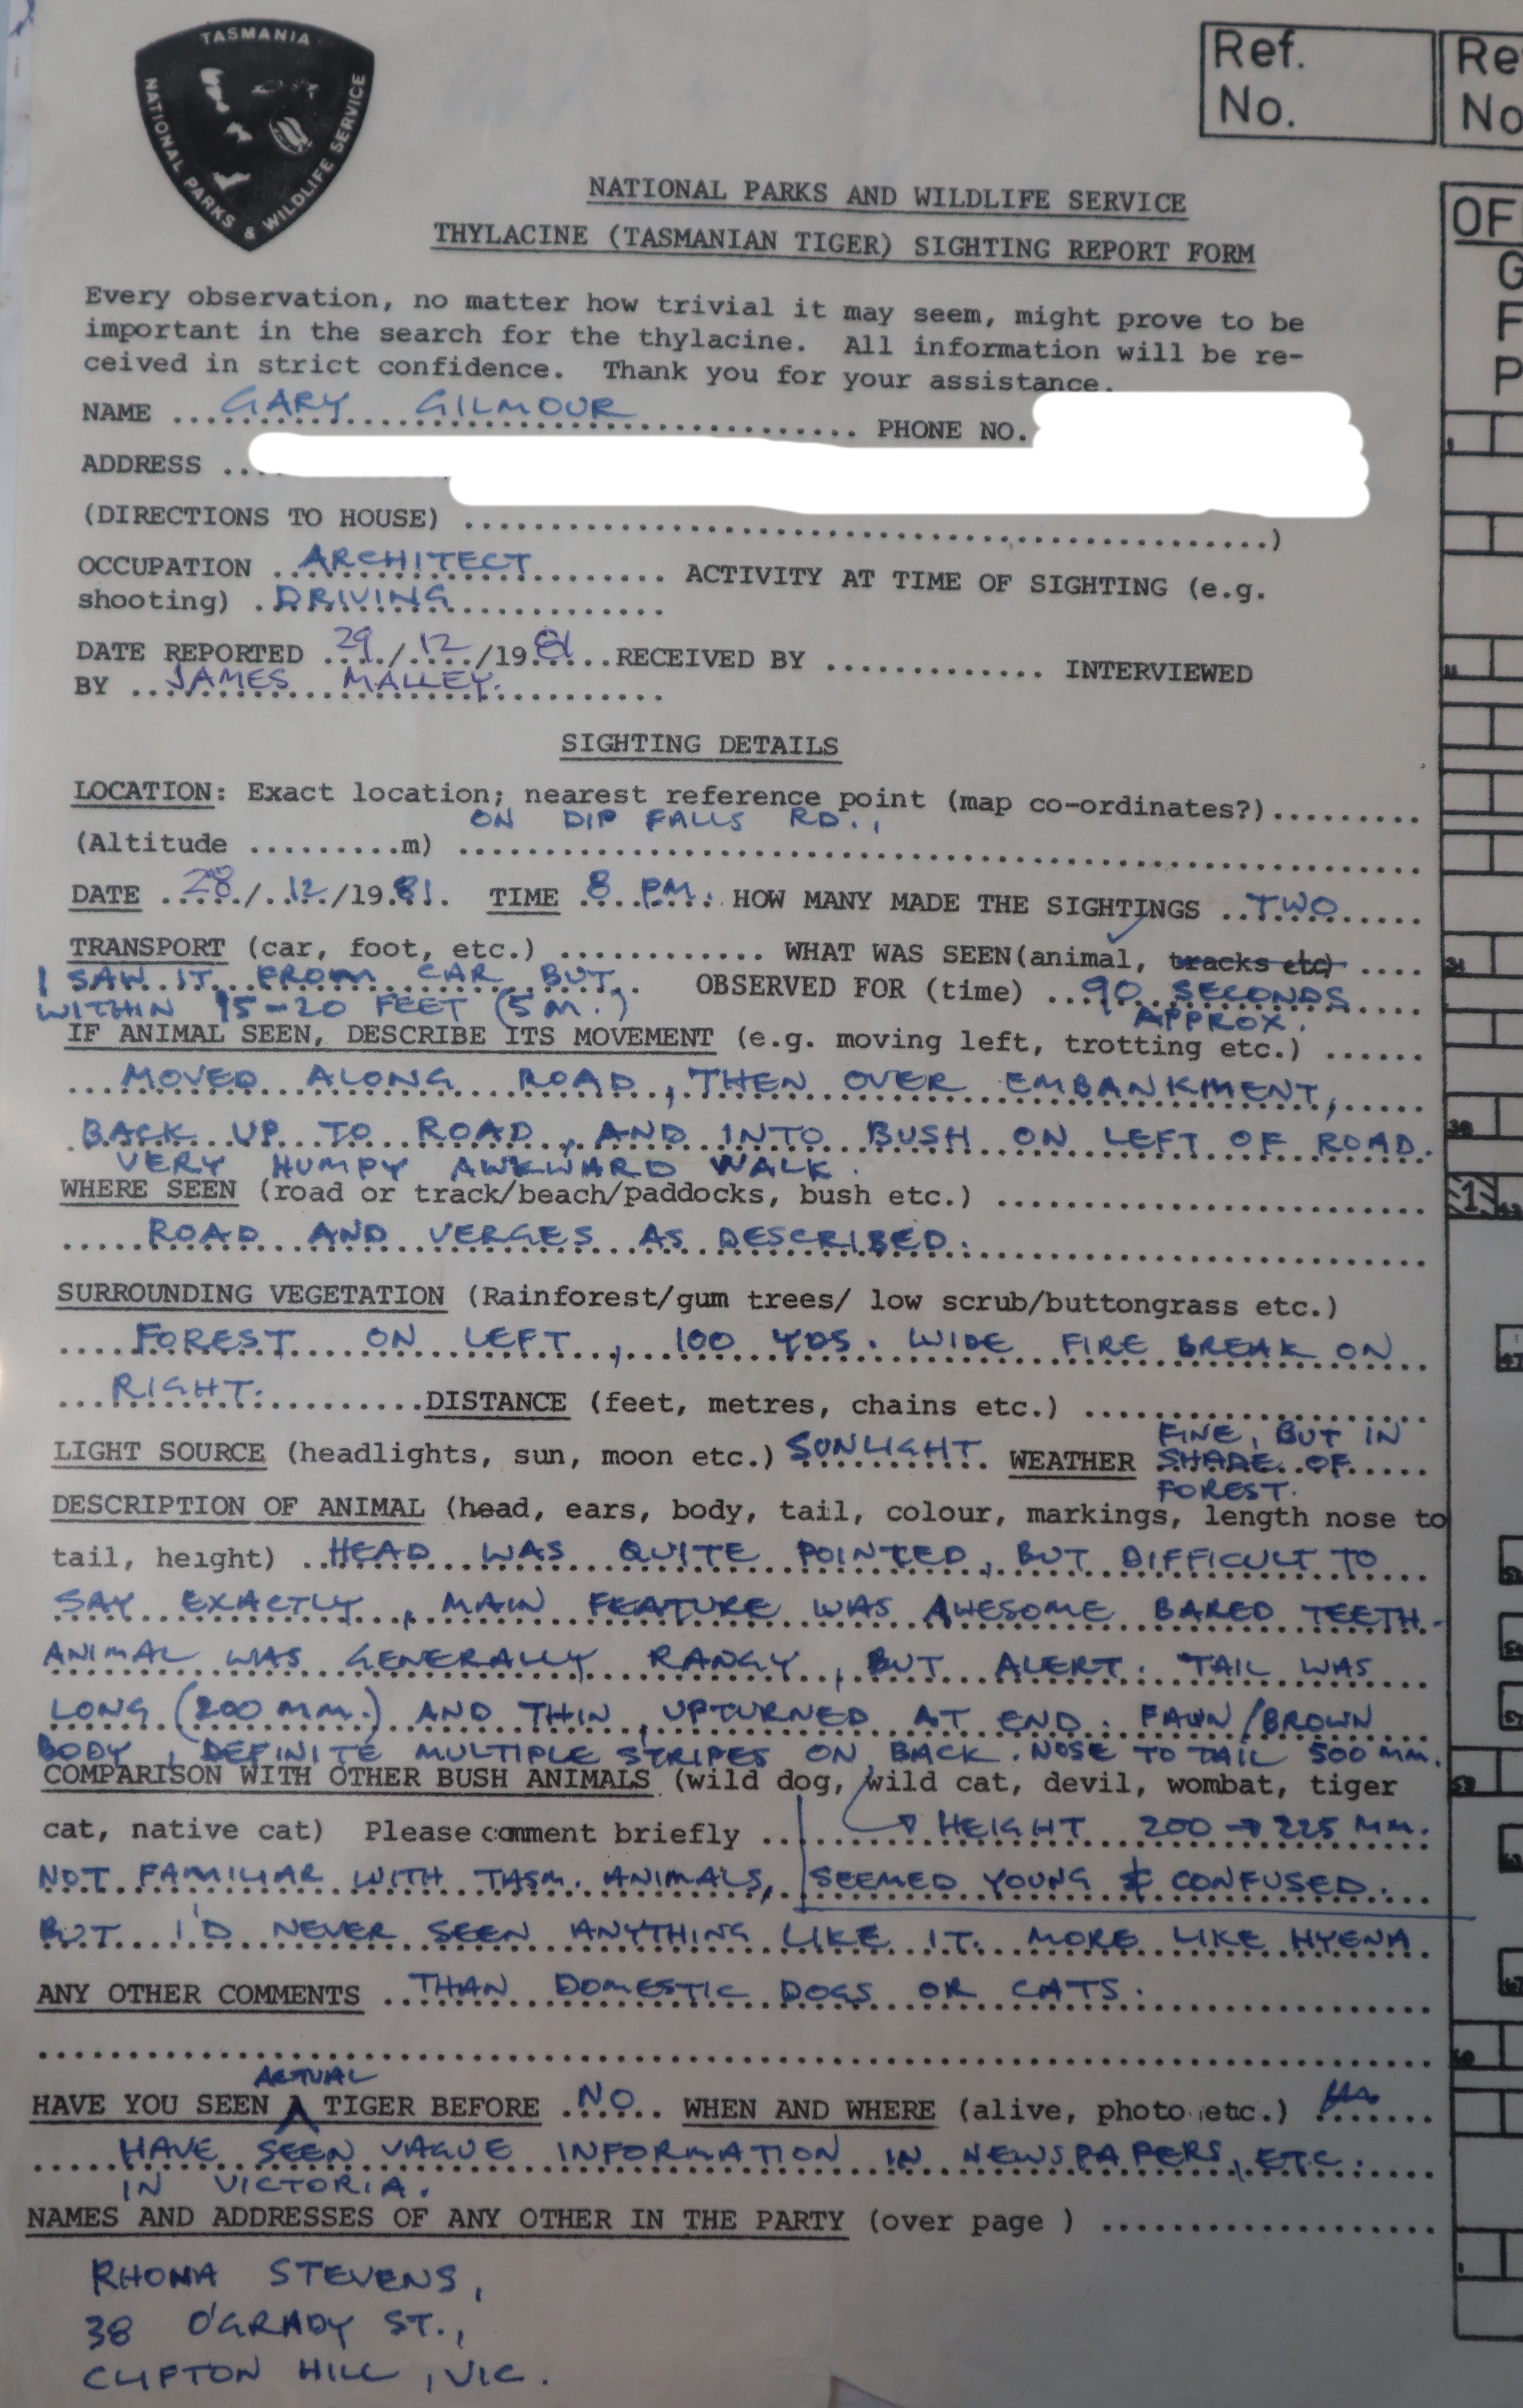 TASMANIA
NATIONAL PARKS & WILDLIFE SERVICE
Ref.
No.
Re
No
NATIONAL PARKS AND WILDLIFE SERVICE
THYLACINE (TASMANIAN TIGER) SIGHTING REPORT FORM
OF
G
F
P
Every observation, no matter how trivial it may seem, might prove to be
important in the search for the thylacine. All information will be re-
ceived in strict confidence. Thank you for your assistance.
NAME ... GARY GILMOUR ... PHONE NO.
ADDRESS ..
(DIRECTIONS TO HOUSE) ........)
OCCUPATION .. ARCHITECT ........ ACTIVITY AT TIME OF SIGHTING (e.g.
shooting) . DRIVING ........
DATE REPORTED 29/12/1981 ...RECEIVED BY ............. INTERVIEWED
BY .. JAMES MALLEY. ........
SIGHTING DETAILS
LOCATION: Exact location; nearest reference point (map co-ordinates?).........
ON DIP FALLS RD.,
(Altitude .........m) ........
DATE 28/12/1981. TIME 8 PM. HOW MANY MADE THE SIGHTINGS .. TWO
TRANSPORT (car, foot, etc.) ............. WHAT WAS SEEN (animal, ✓ tracks etc) ....
I SAW IT FROM CAR BUT OBSERVED FOR (time) ... 90 SECONDS
WITHIN 15-20 FEET (5 M.) APPROX.
IF ANIMAL SEEN, DESCRIBE ITS MOVEMENT (e.g. moving left, trotting etc.) ......
MOVED ALONG ROAD, THEN OVER EMBANKMENT,
BACK UP TO ROAD, AND INTO BUSH ON LEFT OF ROAD.
VERY HUMPY AWKWARD WALK.
WHERE SEEN (road or track/beach/paddocks, bush etc.) ........
1
ROAD AND VERGES AS DESCRIBED.
SURROUNDING VEGETATION (Rainforest/gum trees/ low scrub/buttongrass etc.)
FOREST ON LEFT, 100 YDS. WIDE FIRE BREAK ON
RIGHT. ........ DISTANCE (feet, metres, chains etc.) ........
LIGHT SOURCE (headlights, sun, moon etc.) SUNLIGHT. WEATHER FINE, BUT IN
SHADE OF
FOREST.
DESCRIPTION OF ANIMAL (head, ears, body, tail, colour, markings, length nose to
tail, height) .. HEAD WAS QUITE POINTED, BUT DIFFICULT TO
SAY EXACTLY, MAIN FEATURE WAS AWESOME BARED TEETH.
ANIMAL WAS GENERALLY RANGY, BUT ALERT. TAIL WAS
LONG (200 MM.) AND THIN, UPTURNED AT END. FAWN/BROWN
BODY, DEFINITE MULTIPLE STRIPES ON BACK. NOSE TO TAIL 500 MM.
COMPARISON WITH OTHER BUSH ANIMALS (wild dog, wild cat, devil, wombat, tiger
cat, native cat) Please comment briefly .. → HEIGHT 200 → 225 MM.
NOT FAMILIAR WITH TASM. ANIMALS, SEEMED YOUNG & CONFUSED.
BUT I'D NEVER SEEN ANYTHING LIKE IT. MORE LIKE HYENA
ANY OTHER COMMENTS .. THAN DOMESTIC DOGS OR CATS.
ACTUAL
HAVE YOU SEEN A TIGER BEFORE . NO ... WHEN AND WHERE (alive, photo etc.) .......
HAVE SEEN VAGUE INFORMATION IN NEWSPAPERS, ETC.
IN VICTORIA.
NAMES AND ADDRESSES OF ANY OTHER IN THE PARTY (over page ) ........
RHONA STEVENS,
38 O'GRADY ST.,
CLIFTON HILL, VIC.